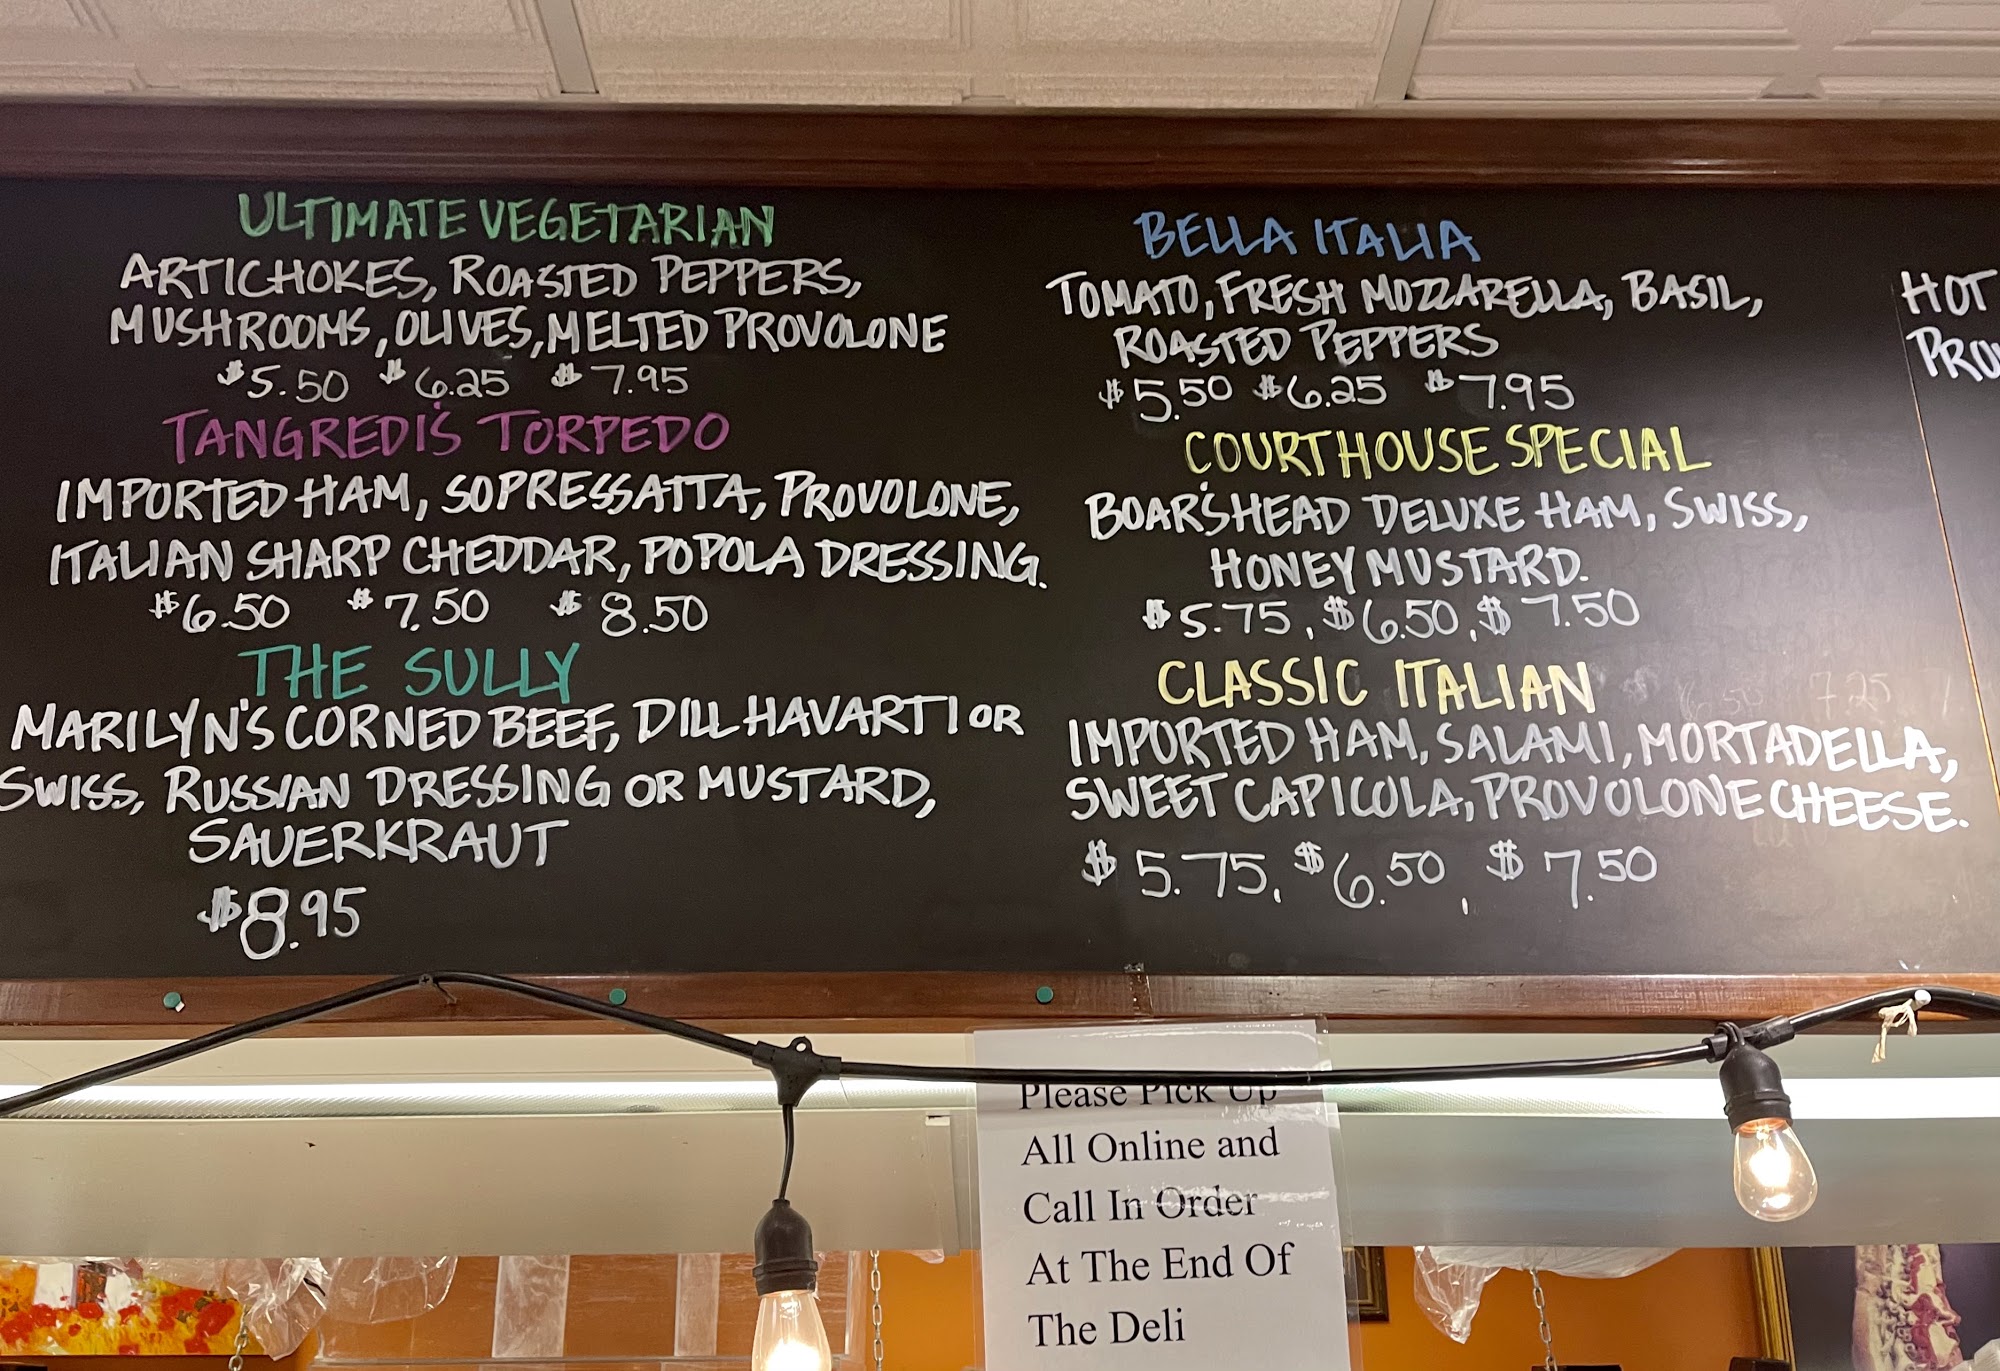 ULTIMATE VEGETARIAN
ARTICHOKES, ROASTED PEPPERS,
MUSHROOMS, OLIVES, MELTED PROVOLONE
$5.50 $6.25 $7.95
TANGREDI'S TORPEDO
IMPORTED HAM, SOPRESSATTA, PROVOLONE,
ITALIAN SHARP CHEDDAR, POPOLA DRESSING.
$6.50 $7.50 $8.50
THE SULLY
MARILYN'S CORNED BEEF, DILL HAVARTI OR
SWISS, RUSSIAN DRESSING OR MUSTARD,
SAUERKRAUT
$8.95
BELLA ITALIA
TOMATO, FRESH MOZZARELLA, BASIL,
ROASTED PEPPERS
$5.50 $6.25 $7.95
COURTHOUSE SPECIAL
BOAR'S HEAD DELUXE HAM, SWISS,
HONEY MUSTARD.
$5.75, $6.50, $7.50
CLASSIC ITALIAN
IMPORTED HAM, SALAMI, MORTADELLA,
SWEET CAPICOLA, PROVOLONE CHEESE.
$5.75, $6.50, $7.50
HOT
Please Pick Up
All Online and
Call In Order
At The End Of
The Deli